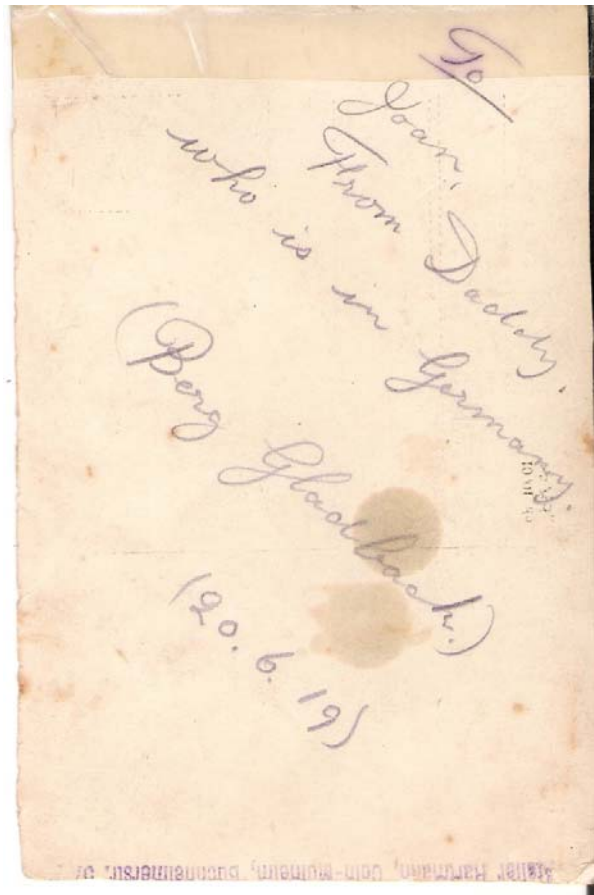 To
Joan,
From Daddy.
who is in Germany.
(Berg Gladbach.)
(20.6.19)
Atelier Hartmann, Cöln-Mülheim, Buchheimerstr.